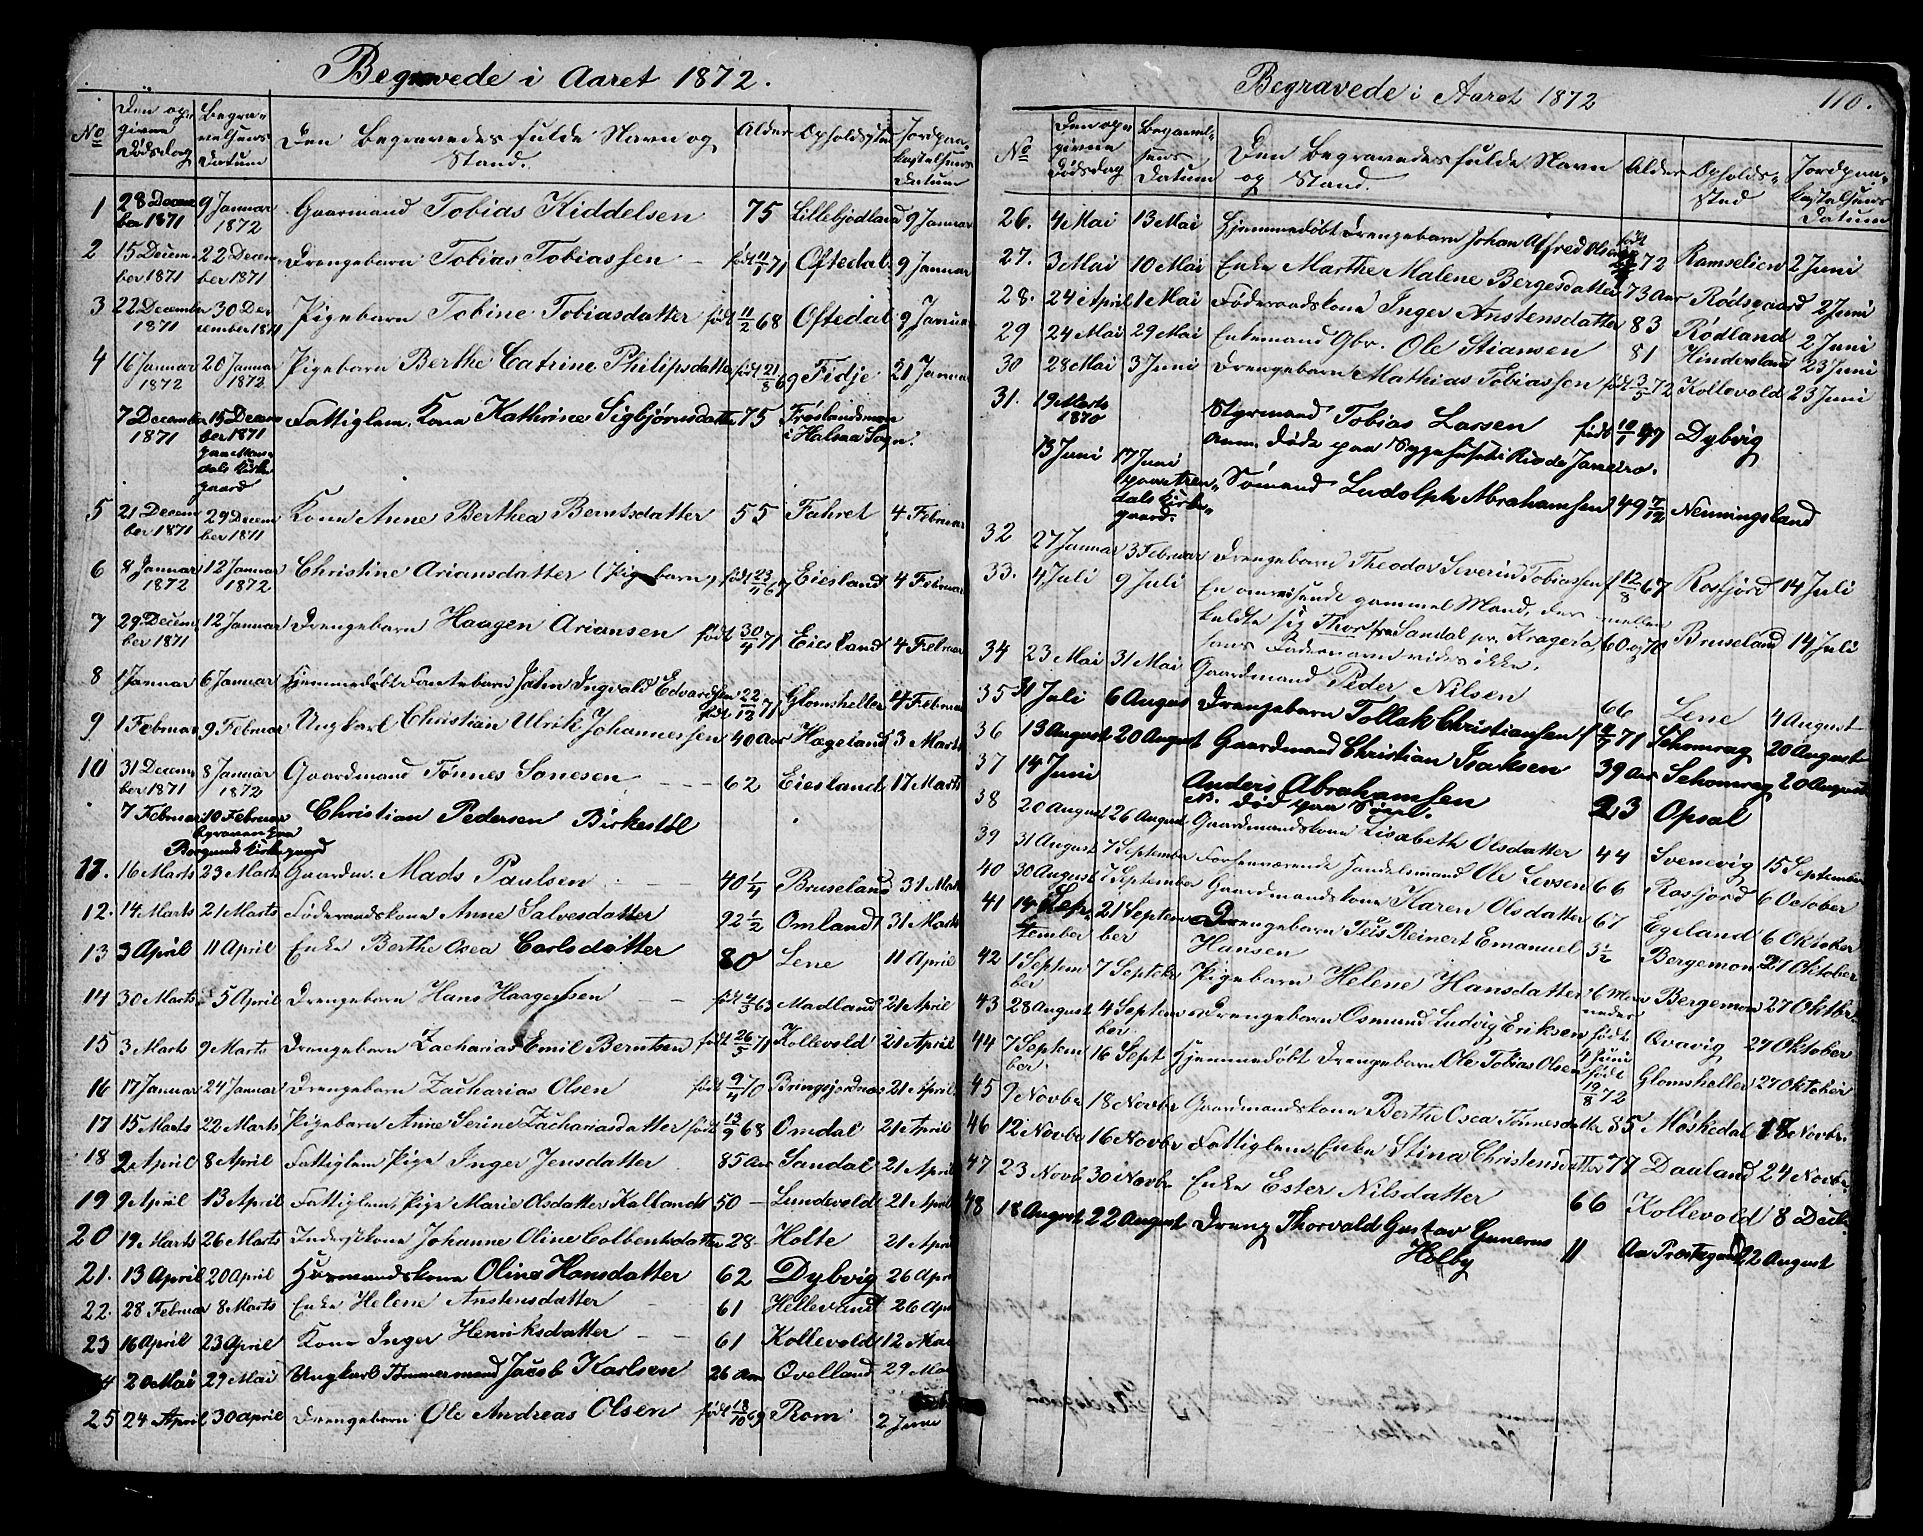 Begravede i Aaret 1872.
No
Den op-
givne
Dødsdag
Begra-
velsens
Datum
Den begravedes fulde Navn og
Stand.
Alder
Opholdssted
Jordpaa-
kastelsens
Datum
1 28 Decem 9 Januar Gaarmand Tobias Kiddelsen 75 Lillebjodland 9 Januar
ber 1871 1872
2 15 Decem 22 Decem Drengebarn Tobias Tobiassen født 71 Oftedal 9 Januar
ber 1871 ber 1871
3 22 December 30 De- Pigebarn Tobine Tobiasdatter født 11/2 68 Oftedal 9 Januar
1871 cember 1871
4 16 Januar 20 Januar Pigebarn Berthe Catrine Philipsdatter født 21/8 69 Fidje 21 Januar
1872 1872
7 December 15 Decem Fattiglem. Kone Kathrine Sigbjørnsdatter 75 Frøslandsmoen
1871 ber 1871 i Halsaa Sogn.
paa Man-
dals Kirke
gaard
5 21 Decem 29 Decem Kone Anne Berthea Berntsdatter 55 Fahret 4 Februar
ber 1871 ber 1871
6 8 Januar 12 Januar Christine Ariansdatter (Pigebarn) født 23/4 67 Eiesland 4 Februar
1872 1872
7 29 Decem 12 Januar Drengebarn Haagen Ariansen født 30/4 71 Eiesland 4 Februar
ber 1871
8 1 Januar 6 Januar Hjemmedøbt John Ingvald Edvardsen født 22/12 71 Glomsheller 4 Februar
9 1 Februar 9 Februar Ungkarl Christian Ulrik Johannessen 40 Aar Hægeland 3 Marts
10 31 Decem 8 Januar Gaardmand Tønnes Sonesen 62 Eiesland 17 Marts
ber 1871 1872
7 Februar 10 Februar Christian Pedersen Birkestøl
begraven paa
Kirkegaard
11. 16 Marts 23 Marts Gaardm. Mads Paulsen 40 1/4 Bruseland 31 Marts
12. 14. Marts 21 Marts Føderaadskone Anne Salvesdatter 92 1/2 Omland 31 Marts
13 3 April 11 April Enke Berthe Osea Carlsdatter 80 Lene 11 April
14 30 Marts 5 April Drengebarn Hans Haagensen født 63 Madland 21 April
15 3 Marts 9 Marts Drengebarn Zacharias Emil Berntsen født 26/5 71 Kollevold 21 April
16 17 Januar 24 Januar Drengebarn Zacharias Olsen født 9/4 70 Bringsjordnes 21 April
17 15 Marts 22 Marts Pigebarn Anne Serine Zachariasdatter født 13/9 68 Omdal 21 April
18 2 April 8 April Fattiglem Pige Inger Jensdatter 85 Aar Sandal 21 April
19 9 April 13 April Fattiglem Pige Marie Olsdatter Kalland 50 Lundevold 21 April
20 19. Marts 26 Marts Inderstkone Johanne Oline Colbentsdatter 28 Holte 21 April
21. 13 April 20 April Husmandskone Oline Hansdatter 62 Dybvig 26 April
22. 28 Februar 8 Marts Enke Helene Anstensdatter 61 Hellevand 26 Apr
23 16 April 23 April Kone Inger Henriksdatter 61 Kollevold 12 Mai
24 20 Mai 29 Mai Ungkarl Tømmermand Jacob Karlsen 26 Aar Qvelland 29 Mai
25 24 April 30 April Drengebarn Ole Andreas Olsen født 18/10 69 Rom 2 Juni
Begravede i Aaret 1872 110.
No
Den op-
givne
Dødsdag
Begravel-
sens
Datum
Den begravedes fulde Navn
og Stand.
Alder
Opholds-
Sted
Jordpaa-
kastelsens
Datum
26. 4 Mai 13 Mai Hjemmedøbt Drengebarn Johan Alfred født 72 Ramselien 2 Juni
27. 3 Mai 10 Mai Enke Marthe Malene Bergesdatter 73 Aar Rødsgaard 2 Juni
28. 24 April 1 Mai Føderaadskone Inger Anstensdatter 83 Rødland 2 Juni
29 24 Mai 29 Mai Enkemand Gbr. Ole Stiansen 81 Hindersland 23 Juni
30 28 Mai 3 Juni Drengebarn Mathias Tobiassen født 3/5 72 Kollevold 23 Juni
31. 19 Marts Styrmand Tobias Larsen født 10/1 47 Dybvig
1870 Anm. døde paa Sygehuset i Rio de Janeiro.
13 Juni 17 Juni Sømand Ludolph Abrahamsen 49 7/12 Nenningsland
paa
dals Kirke-
gaard.
32 27 Januar 3 Februar Drengebarn Theodor Severin Tobiassen f 12/8 67 Rosfjord 14 Juli
33. 4 Juli 9 Juli En omreisende gammel Mand, der mellem
kaldte sig Thor fra Sandal pr. Kragerø, 60 og 70 Bruseland 14 Juli
hans Fadernavn vides ikke.
34 23 Mai 31 Mai Gaardmand Peder Nilsen 66 Lene 4 August
35 31 Juli 6 August Drengebarn Tollak Christiansen f 71 Schomrag 20 August
36 13 August 20 August Gaardmand Christian Isaksen 39 Aar Schomrag 20 August
37 14 Juni Anders Abrahamsen 23 Opsal
N. død paa Søen.
38 20 August 26 August Gaardmandskone Lisabeth Olsdatter 44 Svenevig 15 September
39 31 August 7 September Forhenværende Handelsmand Ole Levsen 66 Rosfjord 6 October
40 30 August 7 September Gaardmandskone Karen Olsdatter 67 Egeland 6 Oktober
41 14 Sep- 21 Septem Drengebarn Teis Reinert Emanuel 3 1/2 Bergemoen 27 Oktober
tember ber Hansen
42 1 Septem 7 Septbr Pigebarn Helene Hansdatter 6 Maa Bergemoen 27 Oktbr.
ber neder
43 28 August 4 Septem Drengebarn Osmund Ludvig Eriksen født Qvavig 27 Oktober
ber 4 Juni
44 7 Septem 16 Sept Hjemmedøbt Drengebarn Ole Tobias Olsen født Glomsheller 27 Oktober
ber. 19/8 72
45 9 Novbr 18 Novbr Gaardmandskone Berthe Osea Tønnesdatter 85 Møskedal 18 Novbr.
46 12 Novbr 16 Novbr Fattiglem Enke Stina Christensdatter 77 Dauland 24 Novbr.
47 23 Novb 30 Novbr Enke Ester Nilsdatter 66 Kollevold 8 Decb.
48 18 August 22 August Dreng Thorvald Gustav Gunerus 11 Aa Prestegaard 22 August
Holby